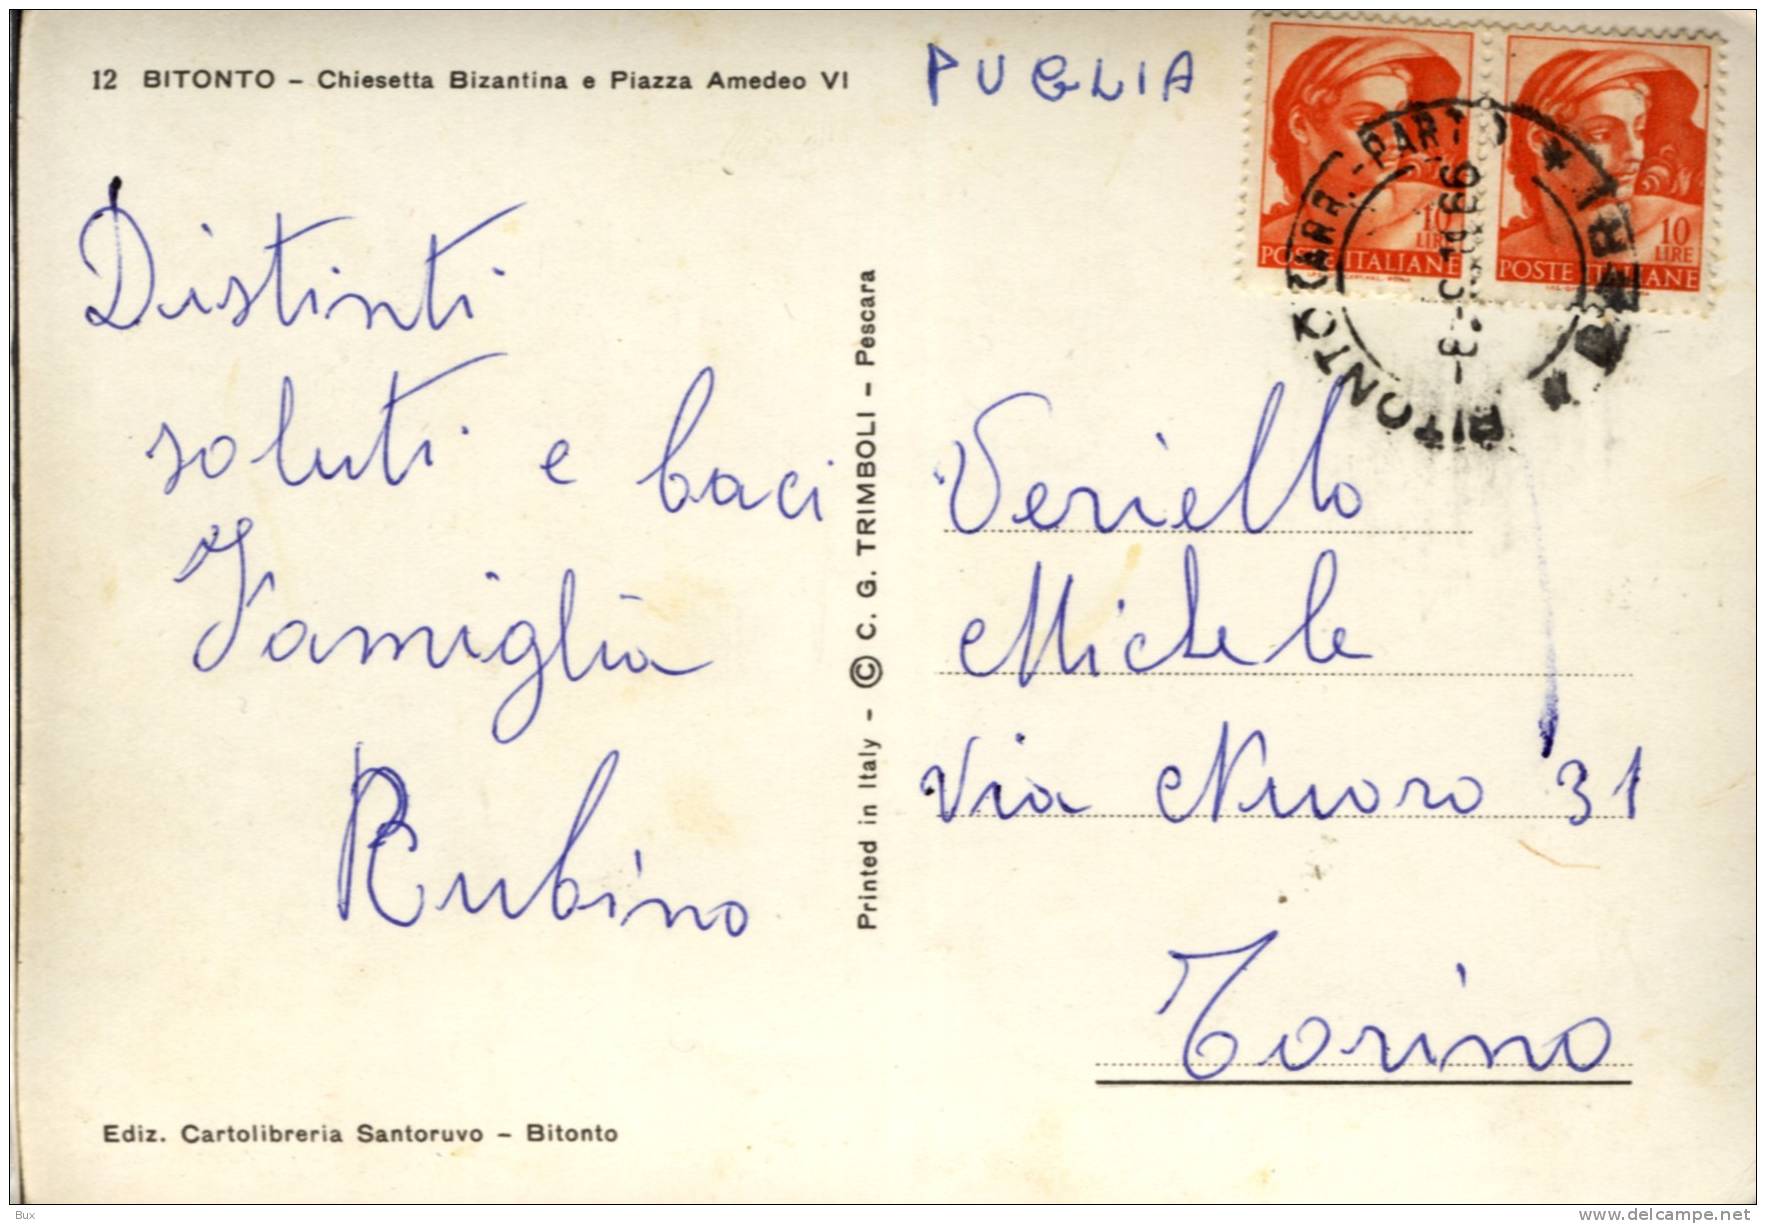 12 BITONTO – Chiesetta Bizantina e Piazza Amedeo VI
PUGLIA
Distinti
saluti e baci
Famiglia
Rubino
Printed in Italy - © C. G. TRIMBOLI - Pescara
10 LIRE
POSTE ITALIANE
10 LIRE
POSTE ITALIANE
BITONTO CARR.-PARTO
Veriello
Michele
Via Nuoro 31
Torino
Ediz. Cartolibreria Santoruvo – Bitonto
Bux
www.delcampe.net